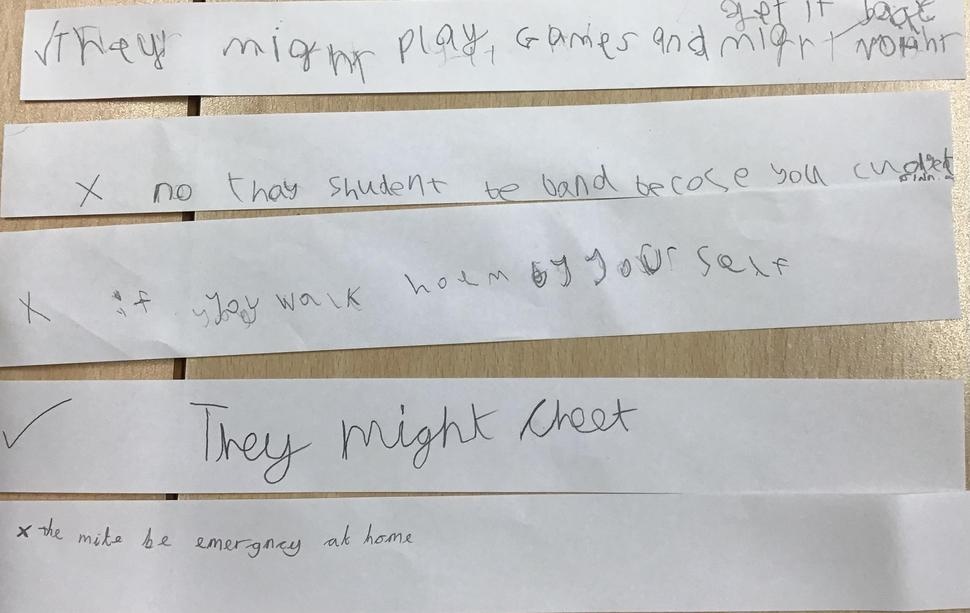 get it
√ They might play games and might
X no thay shudent be band becose you cud get
X if you walk hoem by your self
✓ They might Cheet
x the mite be emergncy at home